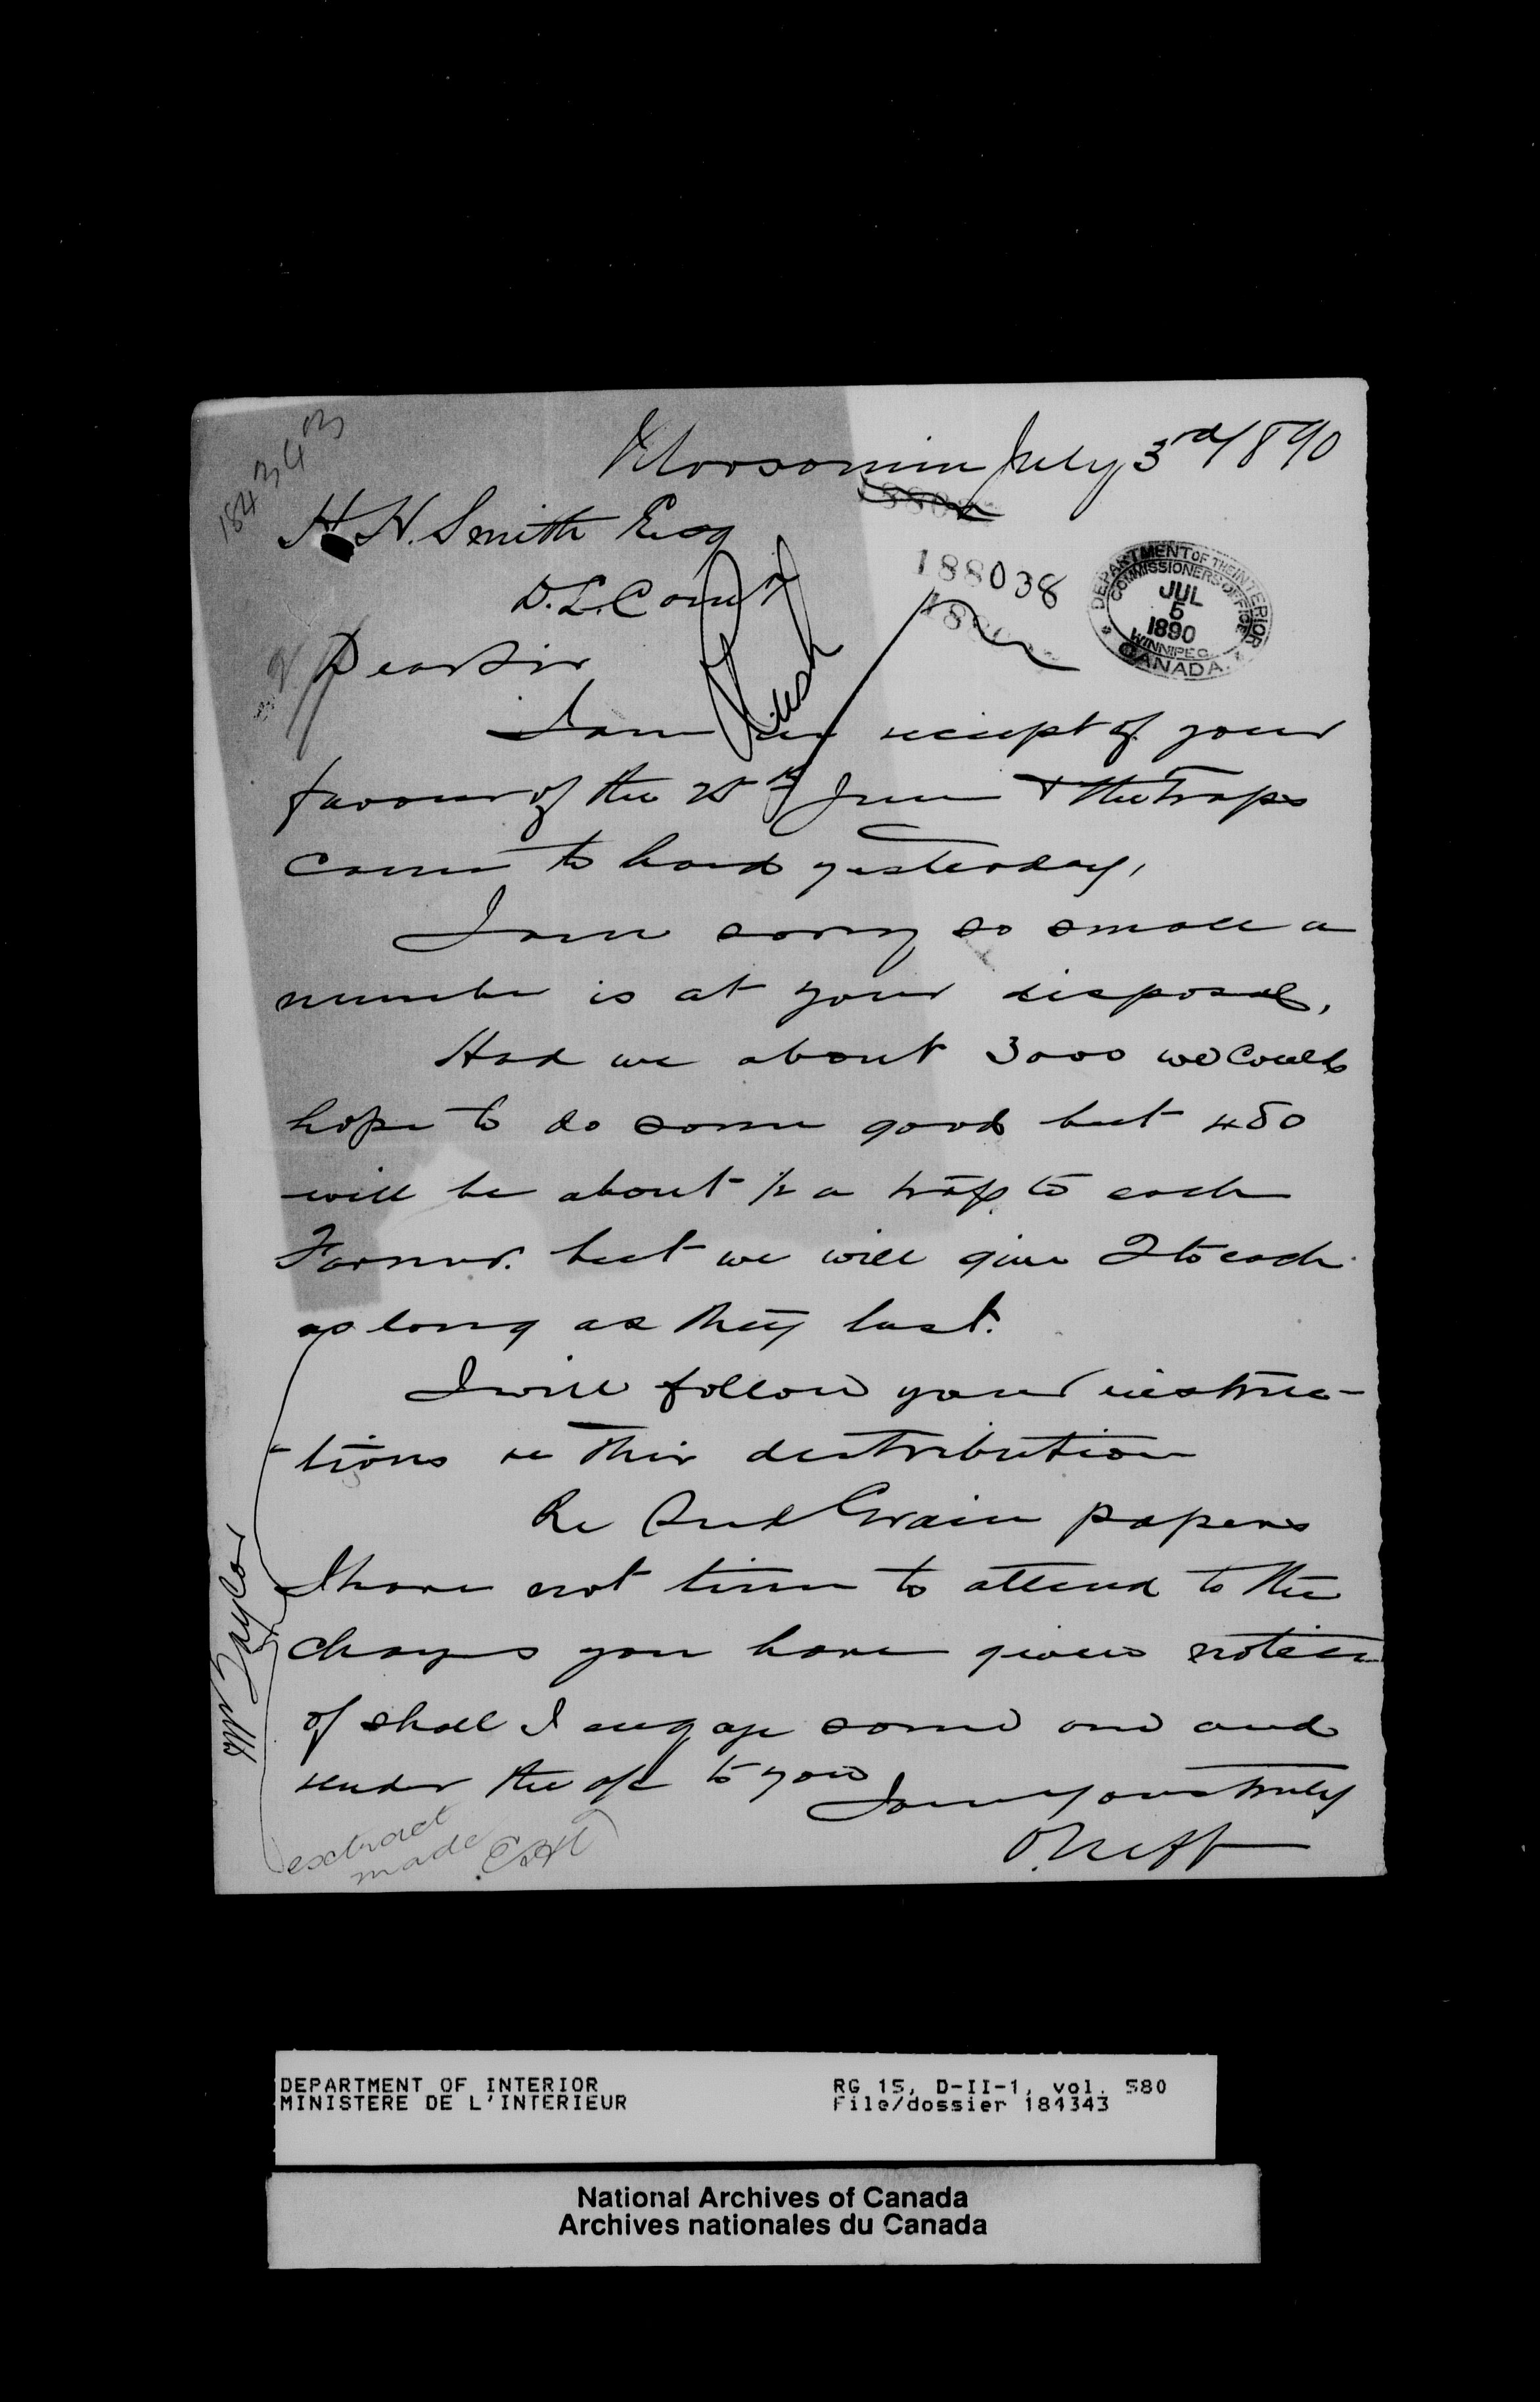 184343
Moosomin July 3rd/890
H.H. Smith Esq
D.L. Com'r
188038
DEPARTMENT OF THE INTERIOR
COMMISSIONERS OFFICE
JUL
5
1890
WINNIPEG
CANADA
Dear Sir
Rush
I am in reciept of your
favour of the 25th June & the Traps
came to hand yesterday,
I am sorry so small a
number is at your disposal,
Had we about 3000 we could
hope to do some good but 450
will be about ½ a trap to each
Farmer. but we will give 2 to each
as long as they last.
I will follow your instruc-
-tions re their distribution
Re Seed Grain papers
I have not time to attend to the
charges you have given notice
of shall I engage some one and
render the a/c to you
I am yours truly
O. Neff
Mr Taylor
extract
made
DEPARTMENT OF INTERIOR
MINISTERE DE L'INTERIEUR
RG 15, D-II-1, vol. 580
File/dossier 184343
National Archives of Canada
Archives nationales du Canada